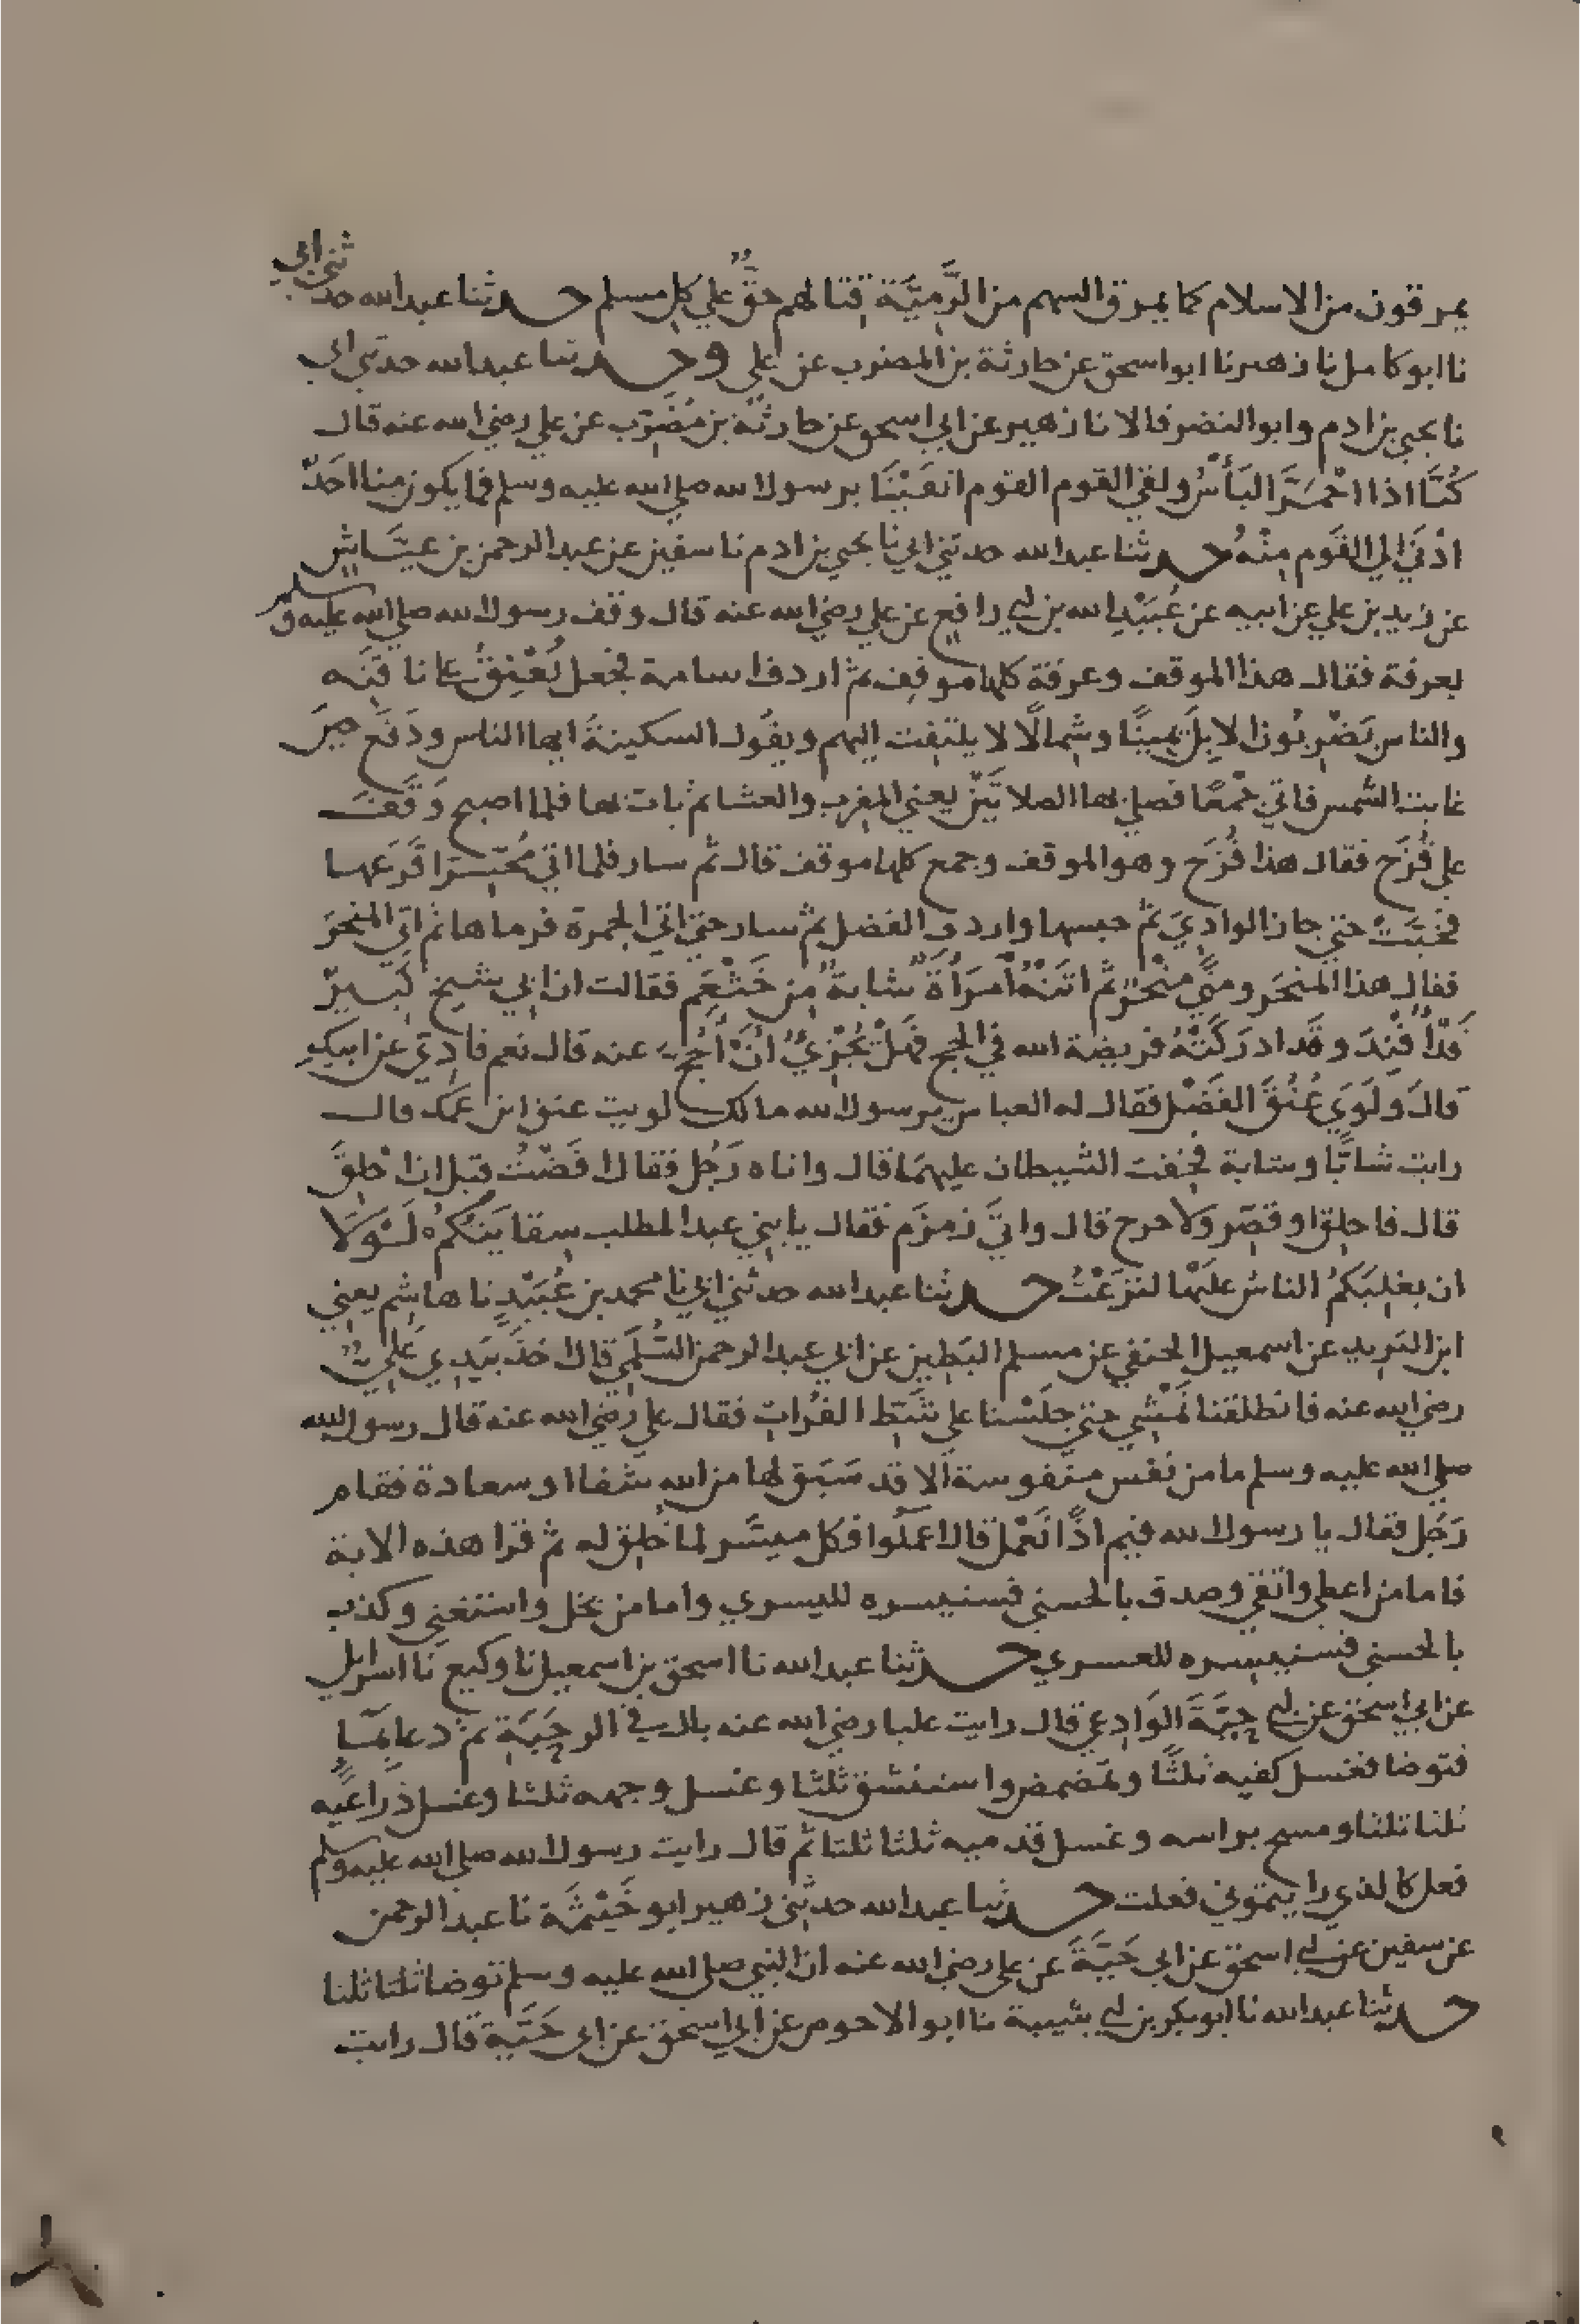 يمرقون من الاسلام كما يمرق السهم من الرَّمِيَّة قتالهم حقٌّ علي كل مسلم حدثنا عبد الله حدثني ابي
نا ابو كامل نا زهير نا ابو اسحق عن حارثة بن المضرب عن علي وحدثنا عبد الله حدثني ابي
نا يحيي بن ادم وابو النضر قالا نا زهير عن ابي اسحق عن حارثة بن مُضَرّب عن علي رضي الله عنه قال
كُنَّا اذا احْمَرَّ البَأْسُ ولقي القوم القوم اتقَيْنَا برسول الله صلي الله عليه وسلم فما يكون منا احَدٌ
ادْنَي الي القَوم مِنْهُ حدثنا عبد الله حدثني ابي نا يحيي بن ادم نا سفين عن عبد الرحمن بن عيَّاش
عن زيد بن علي عن ابيه عن عُبَيْدِ الله بن ابي رافع عن علي رضي الله عنه قال وقف رسول الله صلي الله عليه وسلم
بعرفة فقال هذا الموقف وعرفة كلها موقف ثم اردف اسامة فجعل يُعْنِقُ علي ناقَتِه
والناس يَضْرِبُون الابِلَ يَمِينًا وشِمالًا لا يلتفت اليهم ويقُول السكينةُ ايها الناس ودَفَع حِينَ
غابت الشمس فاتي جَمْعًا فصلي بها الصلاتَيْن يعني المغرب والعشا ثم بات بها فلما اصبح وَقَفَ
علي قُزَح فقال هذا قُزَح وهو الموقف وجمع كلها موقف قال ثم سار فلما اتي مُحَسِّرًا قَرَعَها
فخَبَّتْ حتي جاز الوادِيَ ثم حبسها واردف الفضل ثم سار حتي اتي الجمرة فرماها ثم اتي المنحَرَ
فقال هذا المنحَر ومِنًي منْحَرٌ ثم اتَتْهُ امْرَأَةٌ شابةٌ مِن خَثْعَم فقالت ان ابي شيخ كَبيرٌ
قَدْ أَفْنَدَ وقد ادرَكَتْهُ فريضة الله في الحج فهَلْ يُجْزِيُ انْ أَحُجَّ عنه قال نعم فادِّي عن ابيكِ
قالَ ولَوَي عُنُقَ الفَضْل فقال له العباس يرسول الله ما لك لويت عنق ابن عمك قال
رايت شابًّا وشابة فخِفت الشيطان عليهمَا قال واتاه رَجُل فقال افَضْتُ قبل ان احْلِقَ
قال فاحلِق او قصّر ولا حرج قال واتَي زمزم فقال يا بني عبد المطلب سِقايَتَكُمْ لَوْلَا
ان يغلِبَكُمُ الناسُ علَيْها لنزَعْتُ حدثنا عبد الله حدثني ابي نا محمد بن عُبَيْدٍ نا هاشِم يعني
ابن البَرِيد عن اسمعيل الحنفي عن مسلم البَطِين عن ابي عبد الرحمن السُّلَمِي قال اخَذَ بِيَدِي عَلِيٌّ
رضي الله عنه فانطلقنا نَمْشِي حتي جَلَسْنا علي شَطِّ الفُرات فقال علي رضي الله عنه قال رسول الله
صلي الله عليه وسلم ما من نَفس منفوسة الا قد سَبَق لها من الله شقا او سعادة فقام
رَجُل فقال يا رسول الله فيم اذًا نَعْمَل قال اعْمَلُوا فكل ميسَّر لما خُلِق له ثم قرا هذه الاية
فاما من اعطي واتقي وصدق بالحسني فسنيسره لليسري واما من بخل واستغني وكذب
بالحسني فسنيسره للعسري حدثنا عبد الله نا اسحق بن اسمعيل نا وكيع نا اسرايل
عن ابي اسحق عن ابي حيَّةَ الوَادِعِي قال رايت عليا رضي الله عنه بال في الرحَبَةِ ثم دعا بِمَاءٍ
فتوضا فغسل كفيه ثلثًا وتمضمض واستنشق ثلثا وغسل وجهه ثلثا وغسل ذراعَيه
ثلثا ثلثا ومسح براسه وغسل قدميه ثلثا ثلثا ثم قال رايت رسول الله صلي الله عليه وسلم
فعل كالذي رايتموني فعلت حدثنا عبد الله حدثني زهير ابو خَيْثَمَة نا عبد الرحمن
عن سفين عن ابي اسحق عن ابي حَيَّةَ عن علي رضي الله عنه ان النبي صلي الله عليه وسلم توضا ثلثا ثلثا
حدثنا عبد الله نا ابو بكر بن ابي شيبة نا ابو الاحوص عن ابي اسحق عن ابي حَيَّة قال رايت